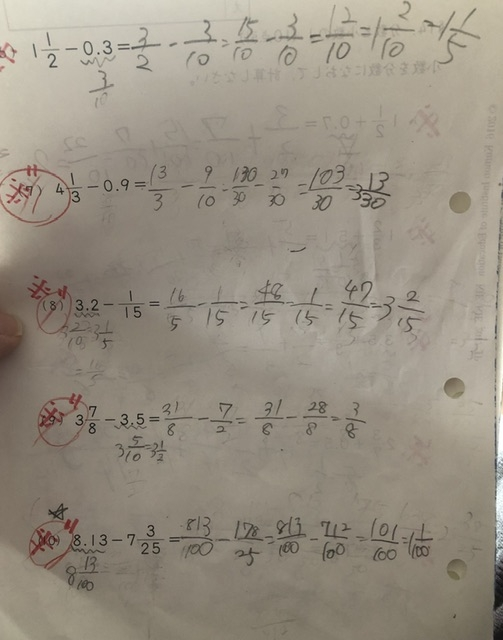 1 1/2 − 0.3 = 3/2 − 3/10 = 15/10 − 3/10 = 12/10 = 1 2/10 = 1 1/5
3/10
(7) 4 1/3 − 0.9 = 13/3 − 9/10 = 130/30 − 27/30 = 103/30 = 3 13/30
(8) 3.2 − 1/15 = 16/5 − 1/15 = 48/15 − 1/15 = 47/15 = 3 2/15
3 2/10 = 3 1/5
= 16/5
(9) 3 7/8 − 3.5 = 31/8 − 7/2 = 31/8 − 28/8 = 3/8
3 5/10 = 3 1/2
(10) 8.13 − 7 3/25 = 813/100 − 178/25 = 813/100 − 712/100 = 101/100 = 1 1/100
8 13/100